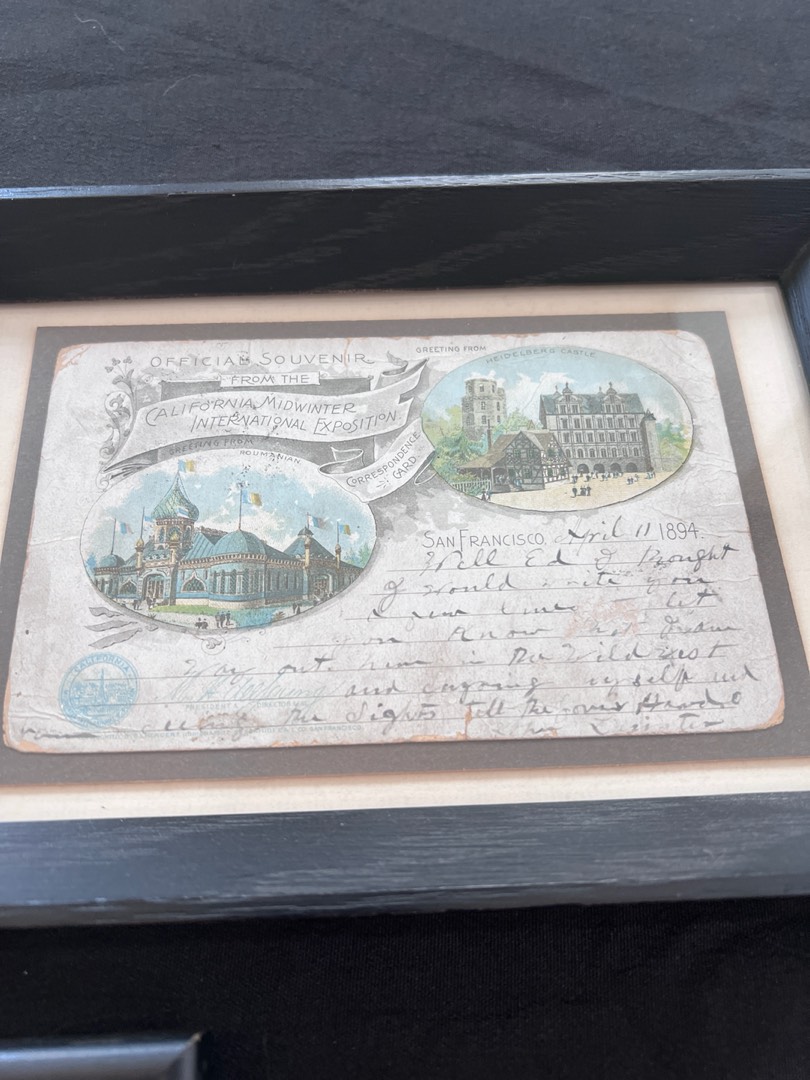 OFFICIAL SOUVENIR
FROM THE
CALIFORNIA MIDWINTER
INTERNATIONAL EXPOSITION
CORRESPONDENCE
CARD
GREETING FROM
HEIDELBERG CASTLE
GREETING FROM
ROUMANIAN
SAN FRANCISCO, April 11 1894.
Well Ed I thought
I would write you
a few lines let
you know that I am
way out here in the Wild West
and enjoying myself and
seeing the sights tell the over
CALIFORNIA
PRESIDENT &